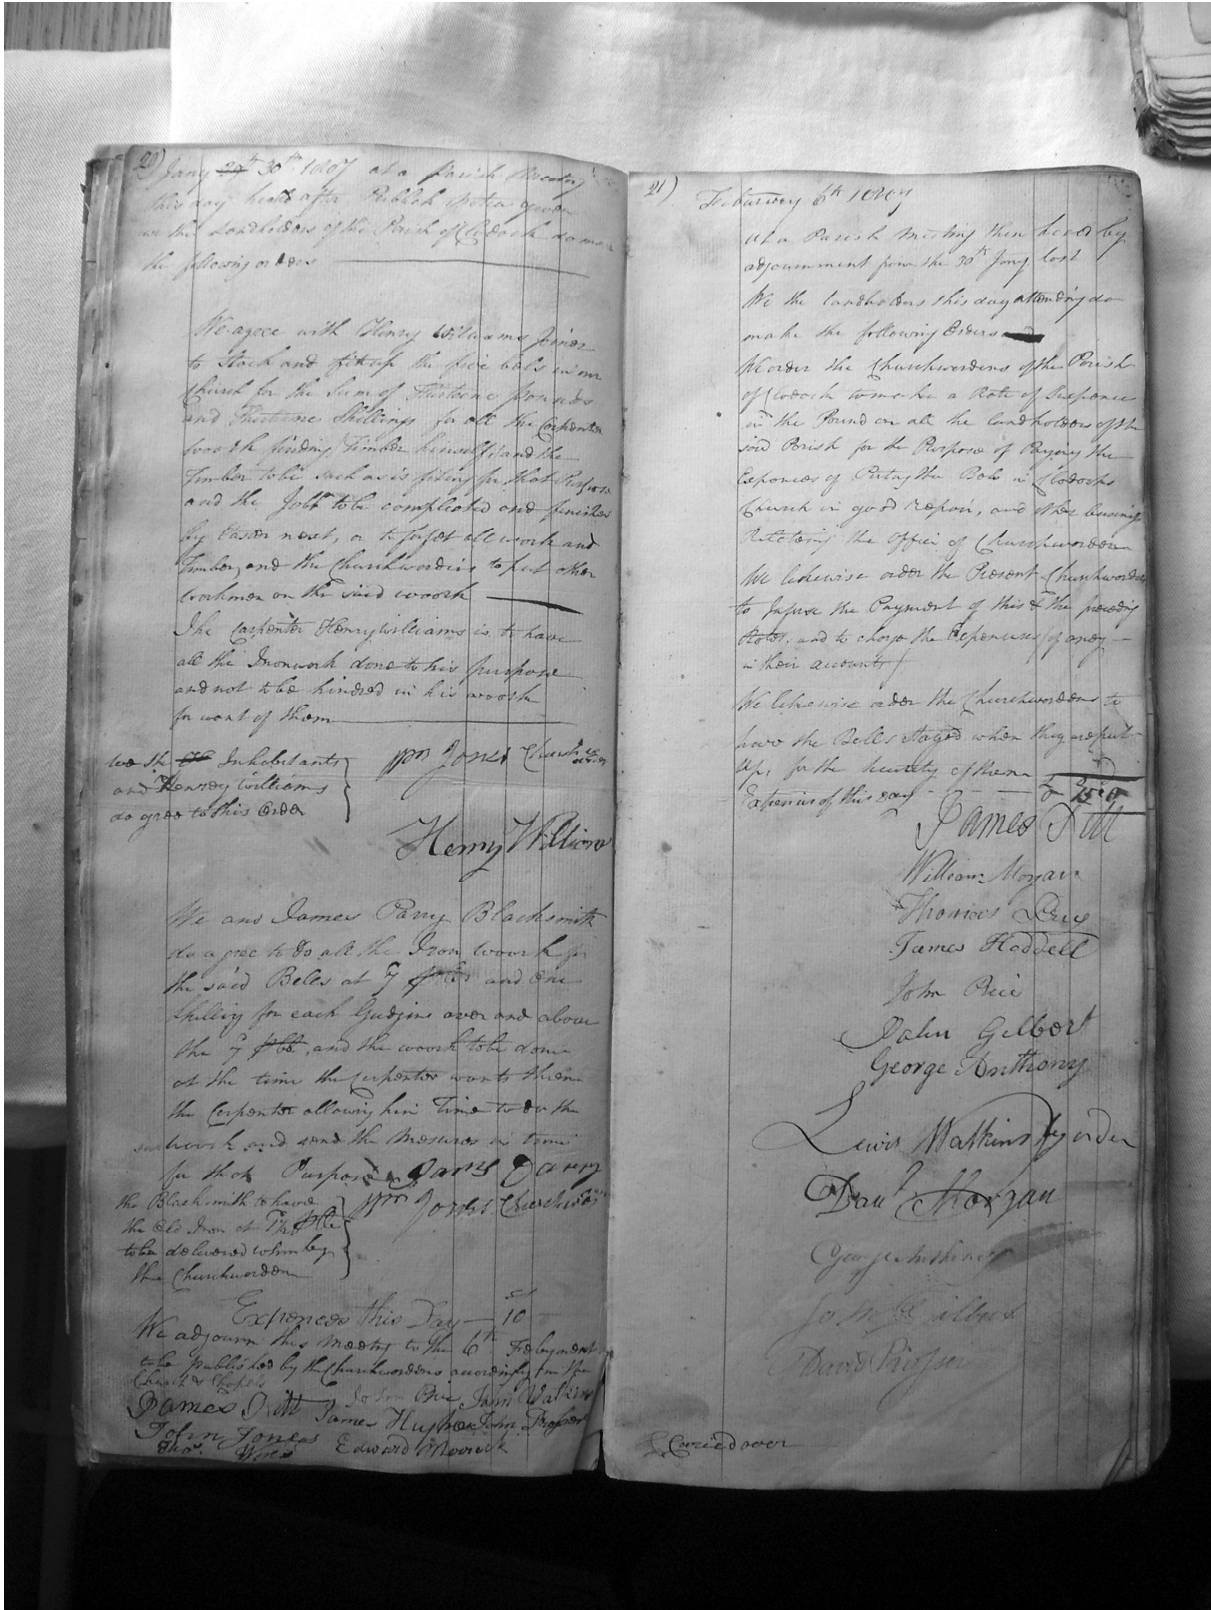 20) Jany 29th 30th 1807 at a Parish Meeting
this day heald after Publick notice given
we the Landholders of the Parish of Clodock do make
the following orders
We agree with Henry Williams Joiner
to Stock and fit up the five bels in our
Church for the Sum of Thirteene pounds
and Thirteene Shillings for all the Carpenter
woork finding Timber himself, and the
Timber to be such as is fiting for that Purpose
and the Jobb to be compleated and finished
by Easter next, or to forfet all work and
Timber, and the Churchwardens to put other
workmen on the said woork
The Carpenter Henry Williams is to have
all the Ironwork done to his purpose
and not to be hindred in his woork
for want of them
we the Inhabitants
and Henrey Williams
do gree to this Order
Wm Jones Church warden
Henry Williams
We and James Parry Blacksmith
do agree to do all the Iron woork for
the said Beles at 7 and one
Shilling for each Gudgins over and above
the 7 and the woork to be done
at the time the Carpenter wants them
the Carpenter allowing him Time to do the
woork and send the Mesures in time
for that Purpose James Parry
the Blacksmith to have
the Old Iron at
to be delivered whim by
the Churchwarden
Wm Jones Churchwarden
Expences this Day — 10
We adjourn this Meeting to the 6th Febry next
to be published by the Churchwardens accordingly in the
Church & Chapels
James Pitt John Price John Watkins
John Jones James Hughes John Prosser
Thos. Edward
21) Februwery 6th 1807
at a Parish Meeting then heald by
adjournment from the 30th Jany last
We the landholders this day attending do
make the following Orders
We order the Churchwardens of the Parish
of Clodock to make a Rate of Sixpence
in the Pound on all the landholders of the
said Parish for the Purpose of Paying the
Expences of Puting the Bels in Clodocks
Church in good repair, and other business
Relateing the Office of Churchwarden
We likewise order the Present Churchwardens
to Infuse the Payment of this & the preceding
Rates, and to charge the Expences if aney
in their accounts
We likewise order the Churchwardens to
have the Bells Staged when they are put
Up, for the security of them
Expences of this day 15
James Pitt
William Morgan
Thomas Price
James Haddell
John Price
John Gelbert
George Anthony
Lewis Watkins by order
Danl Morgan
George Anthony
John Gilbert
David Prosser
Caried over